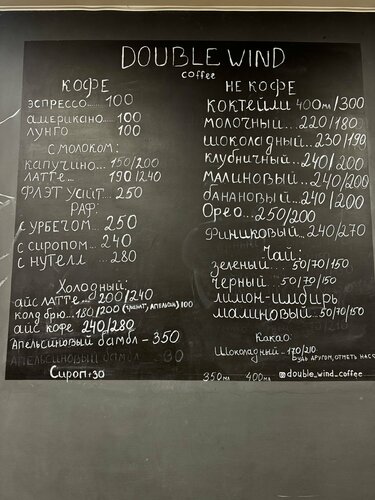 DOUBLE WIND
coffee
КОФЕ
эспрессо...... 100
американо 100
лунго 100
С МОЛОКОМ:
капучино... 150/200
латте... 190/240
ФЛЭТ УАЙТ.. 250
РАФ:
с урбечом.. 250
с сиропом... 240
с нутелл 280
Холодный:
айс латте... 200/240
колд брю...180/200 (гранат, апельсин) 100
айс кофе 240/280
Апельсиновый бамбл - 350
Сироп+30
НЕ КОФЕ
КОКТЕЙЛИ 400мл/300
молочный...220/180
шоколадный..230/190
клубничный...240/200
малиновый 240/200
банановый...240/200
Орео...250/200
Финиковый..240/270
Чай:
зеленый... 50/70/150
чёрный... 50/70/150
лимон-имбирь
малиновый 50/70/150
Какао:
Шоколадный..170/210
БУДЬ ДРУГОМ, ОТМЕТЬ НАС
350мл 400мл @double_wind_coffee